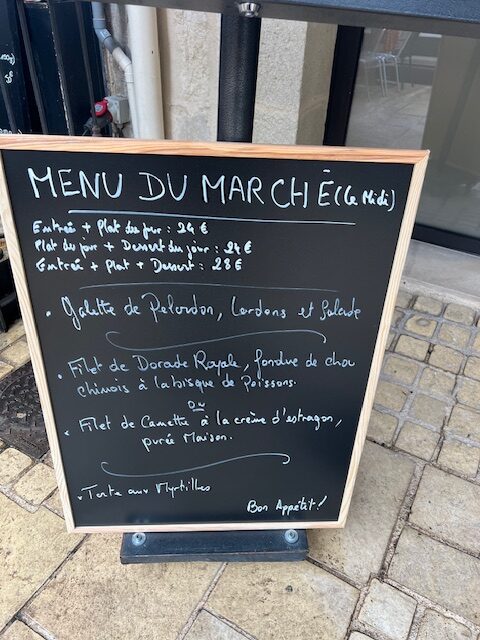 MENU DU MARCHÉ (Le Midi)
Entrée + Plat du jour : 24 €
Plat du jour + Dessert du jour : 24 €
Entrée + Plat + Dessert : 28 €
• Galette de Pelardon, Lardons et Salade
• Filet de Dorade Royale, fondue de chou
chinois à la bisque de Poissons.
ou
• Filet de Canette à la crème d'estragon,
purée Maison.
• Tarte aux Myrtilles
Bon Appétit !